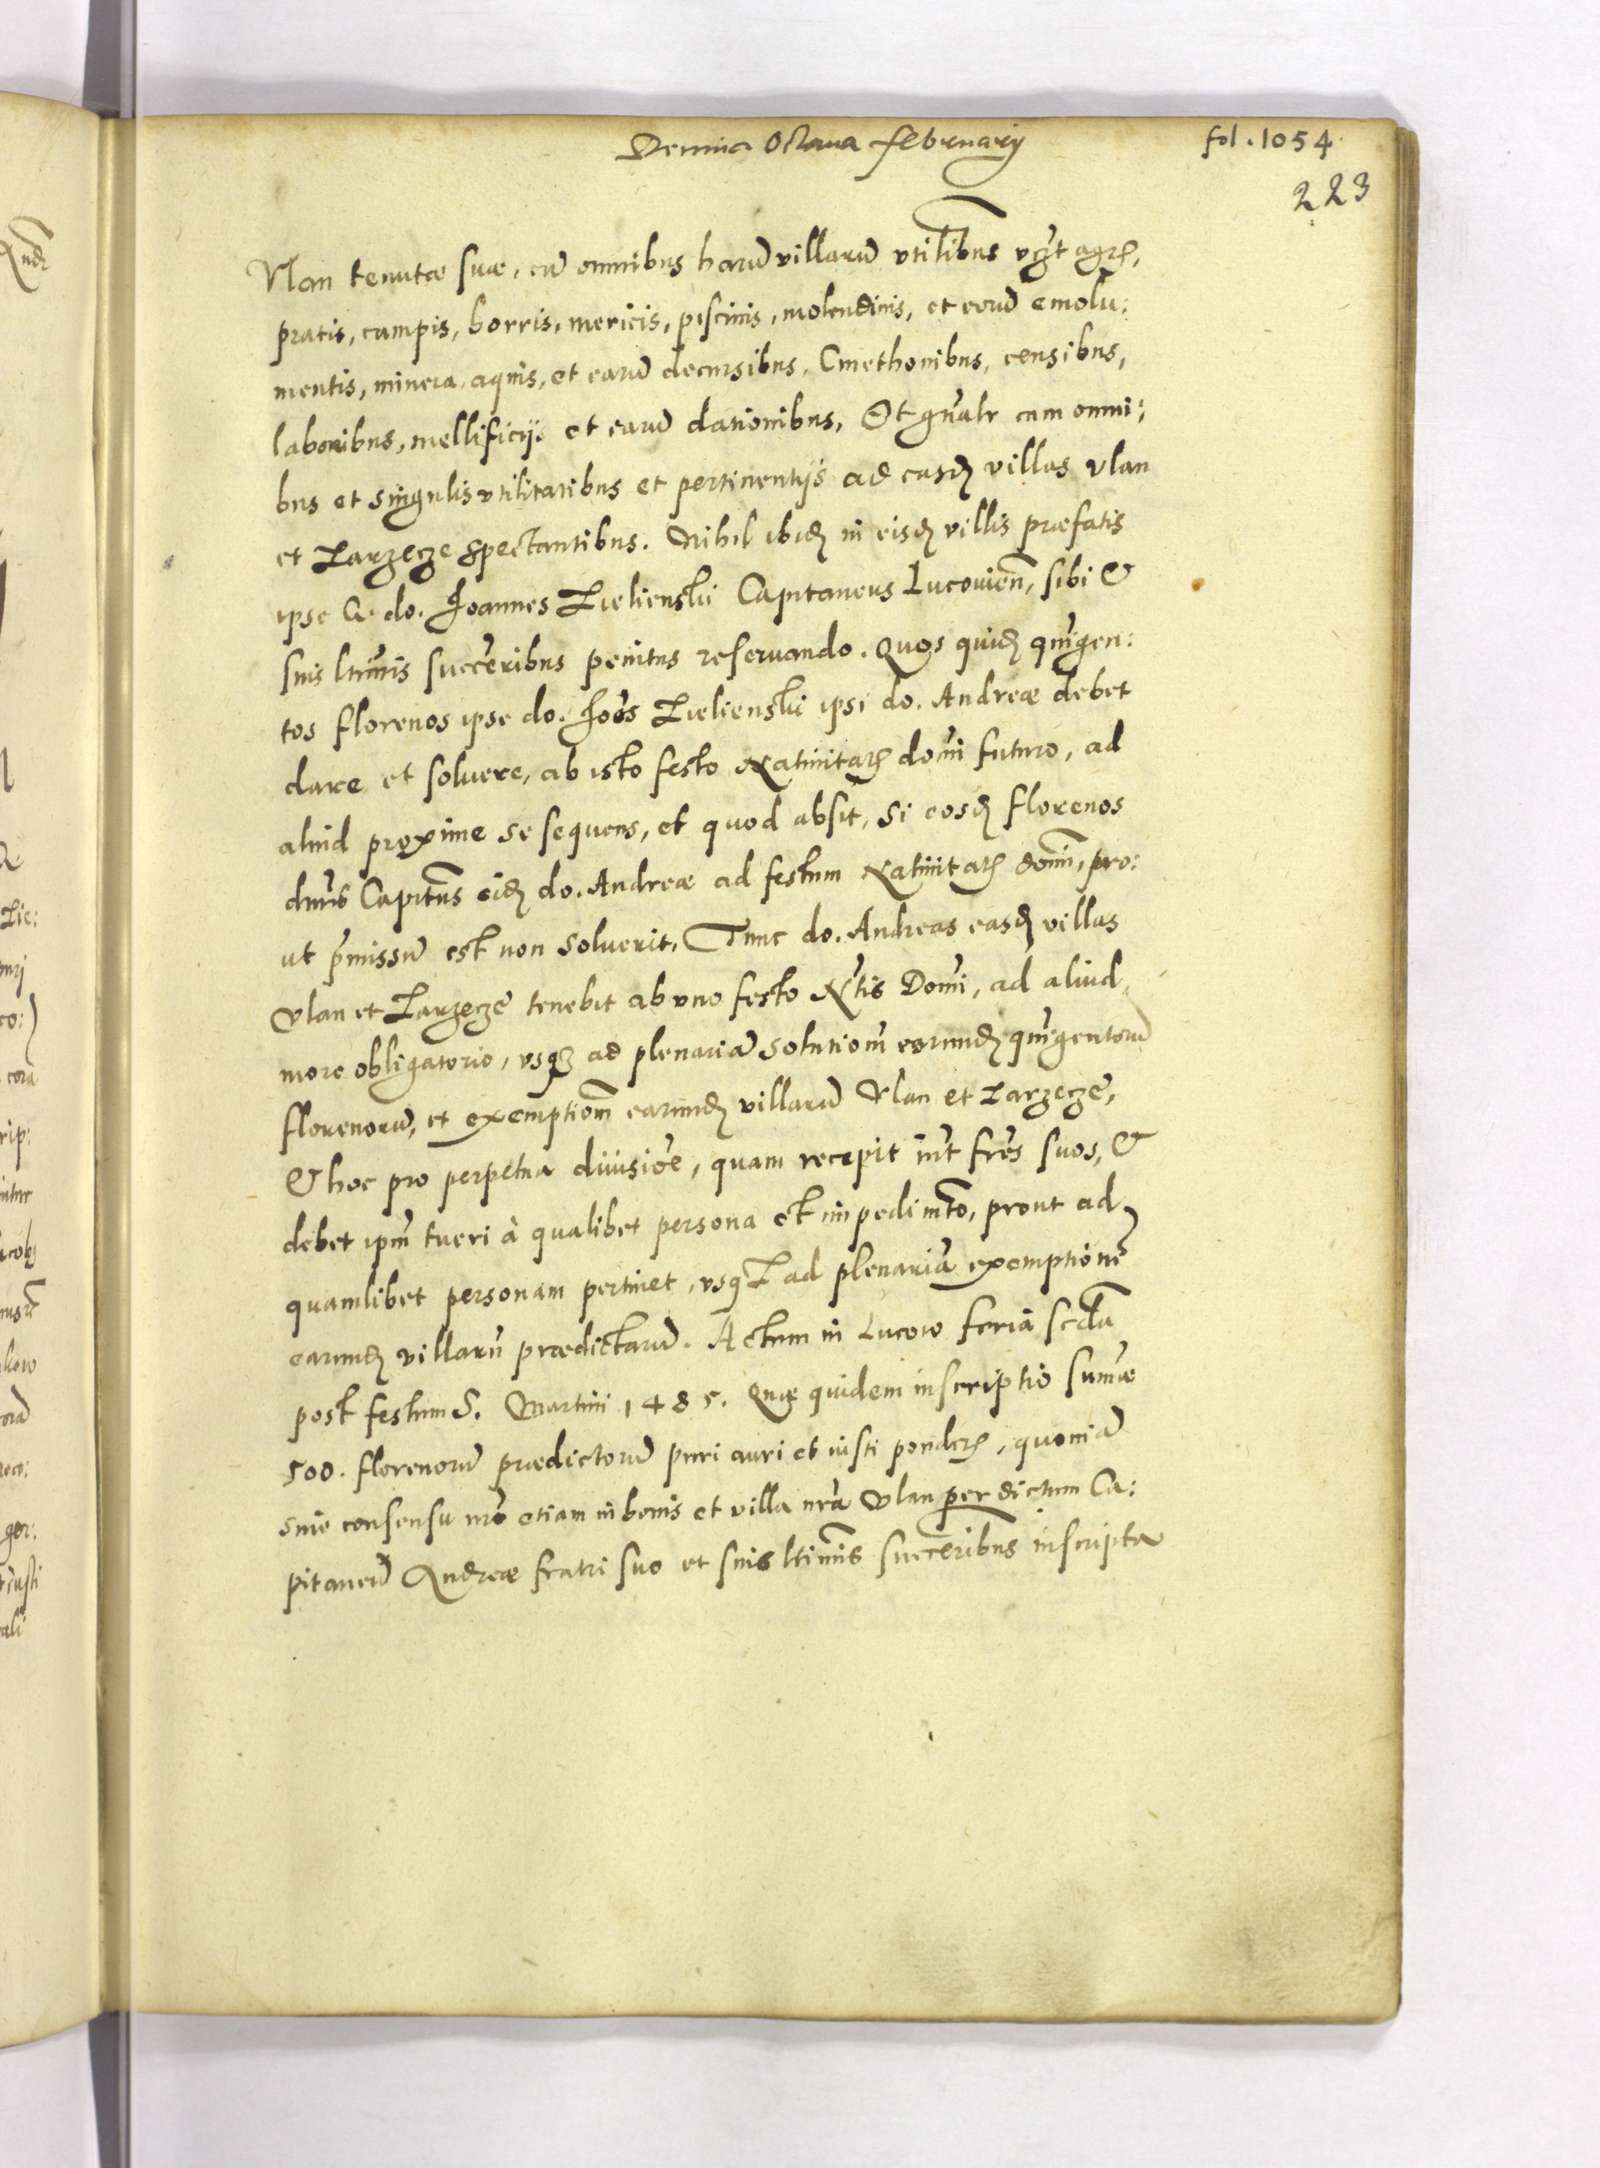 Octava Februarij
fol. 1054
223
Vlan tenutæ suæ, cũ omnibus harũ villarũ vtilibus vɜt agrꝭ,
pratis, campis, borris, mericis, piscinis, molendinis, et eorũ emolu:
mentis, minera, aquis, et earũ decursibus, Cmethonibus, censibus,
laboribus, mellificijs et earũ dationibus, Et gñalr cum omni:
bus et singulis vtilitatibus et pertinentijs ad easdꝫ villas Vlan
et Zarzecze spectantibus. Nihil ibidꝫ in eisdꝫ villis præfatis
ipse G. do. Joannes Zielienski Capitaneus Lucovień, sibi &
suis ltimis succeribus penitus reservando. Quos quidꝫ quĩgen:
tos florenos ipse do. Joes Zielienski ipsi do. Andreæ debet
dare et solvere, ab isto festo Natiuitatꝭ domi futuro, ad
aliud proxime se sequens, et quod absit, si eosdꝫ florenos
dnus Capitns eidꝫ do. Andreæ ad festum Natiuitatꝭ domi, pro:
ut pmissũ est non solverit, Tunc do. Andreas easdꝫ villas
Vlan et Zarzecze tenebit ab vno festo Ntis Domi, ad aliud,
more obligatorio, vsqꝫ ad plenariã solutiom eorundꝫ quĩgentorũ
florenorũ, et exemptiom earundꝫ villarũ Vlan et Zarzecze,
& hoc pro perpetua diuisioe, quam recepit int fres suos, &
debet ipm tueri à qualibet persona et impedimto, prout ad
quamlibet personam pertinet, vsqꝫ ad plenariã exemptionẽ
earundꝫ villarũ prædictarũ. Actum in Lucow feria scda
post festum S. Martini 1485. Quæ quidem inscriptio sumæ
500. florenorũ prædictorũ puri auri et iusti ponderꝭ, quoniã
sine consensu nro etiam in bonis et villa nra Vlan per dictum Ca:
pitaneũ Andreæ fratri suo et suis ltimis succeribus inscripta